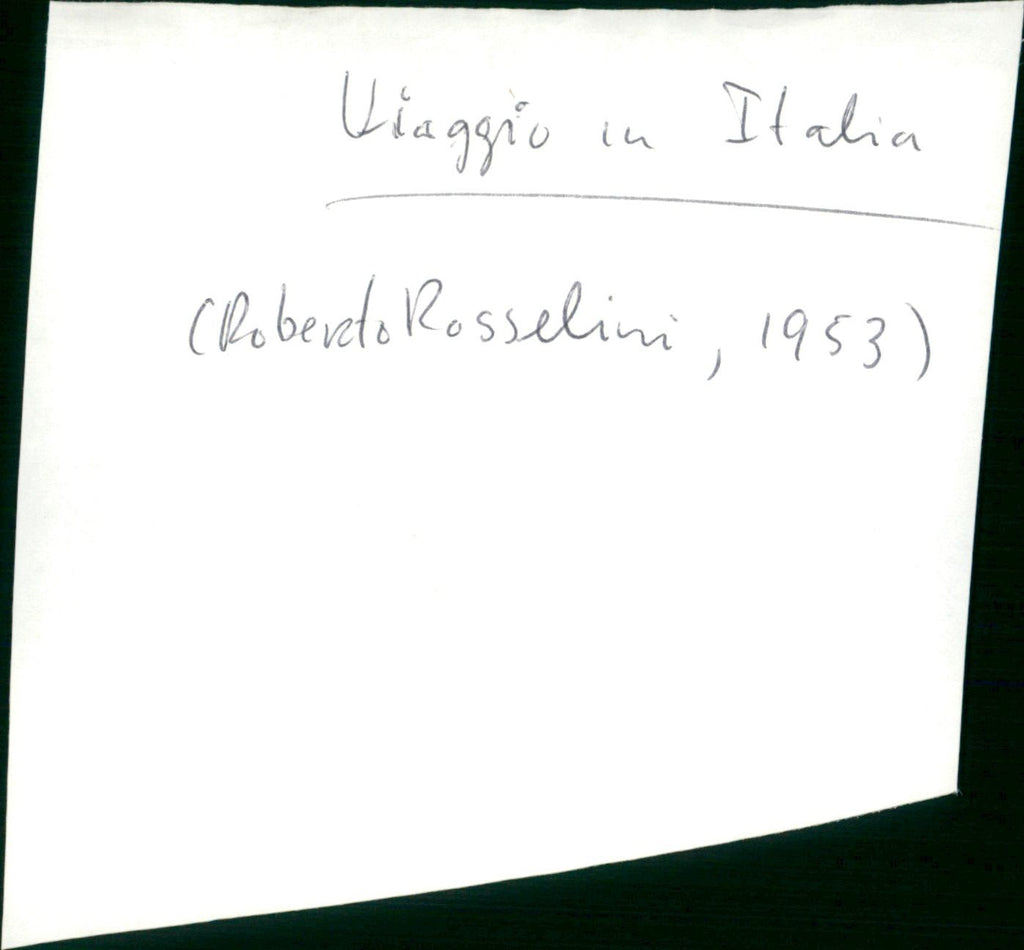 Viaggio in Italia
(Roberto Rosselini, 1953)